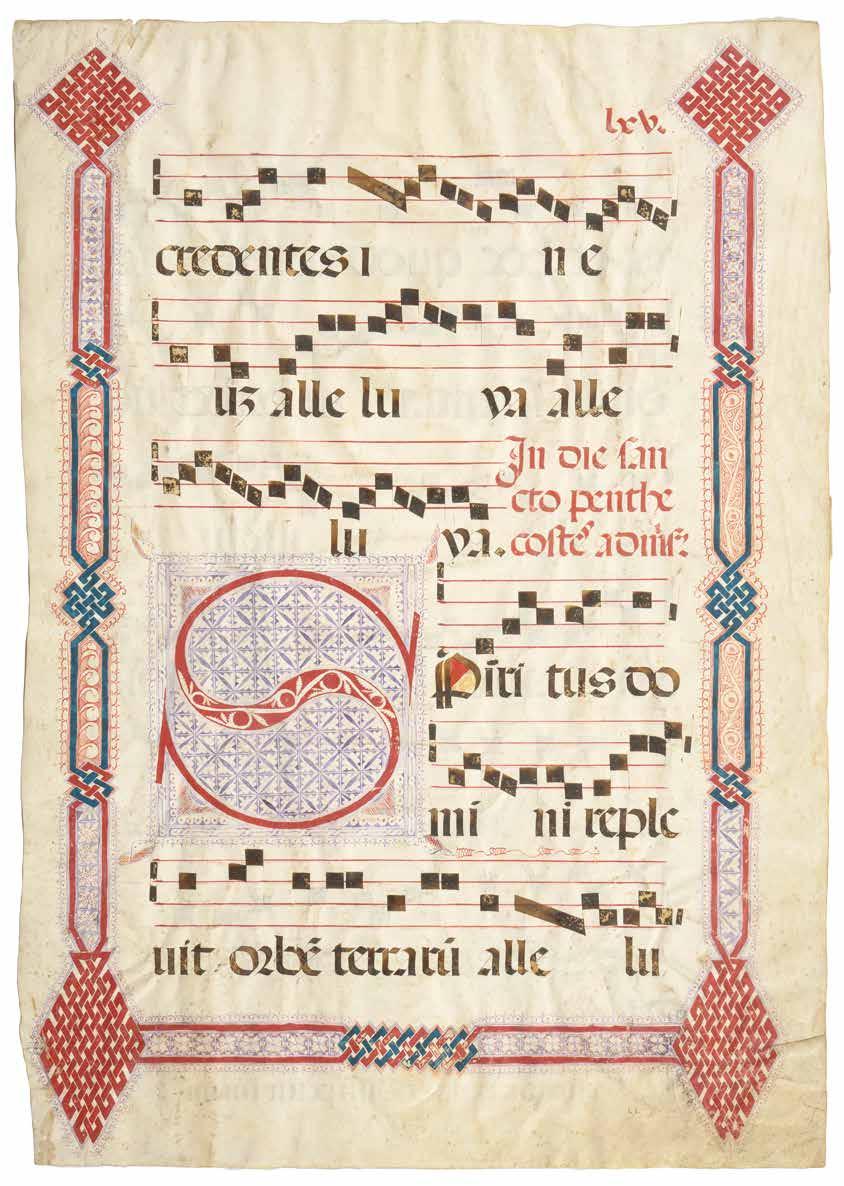 lxv.
credentes i n e
uʒ alle lu ya alle
In die san
cto penthe
lu ya. coste adui͛s?
Spiri tus do
mi ni reple
uit orbē terrarū alle lu